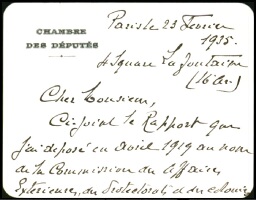 CHAMBRE
DES DÉPUTÉS
Paris le 23 Fevrier
1935.
4 Square La Fontaine
(16 Arr)
Cher Monsieur,
Ci-joint le Rapport que
j'ai déposé en avril 1919 au nom
de la Commission des Affaires
Extérieures, du Protectorat et des colonies